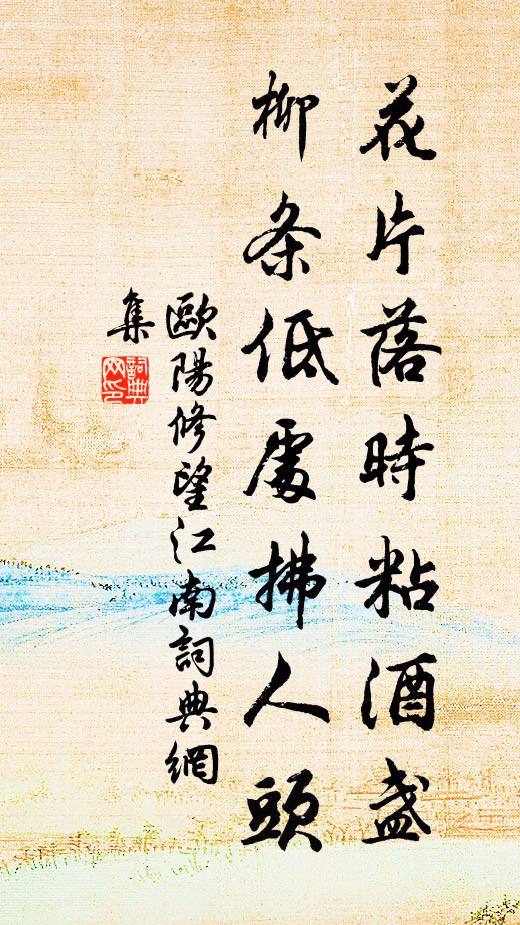 花片落時粘酒盞
柳条低處拂人頭
歐陽修望江南詞典網
集
詞典
网印